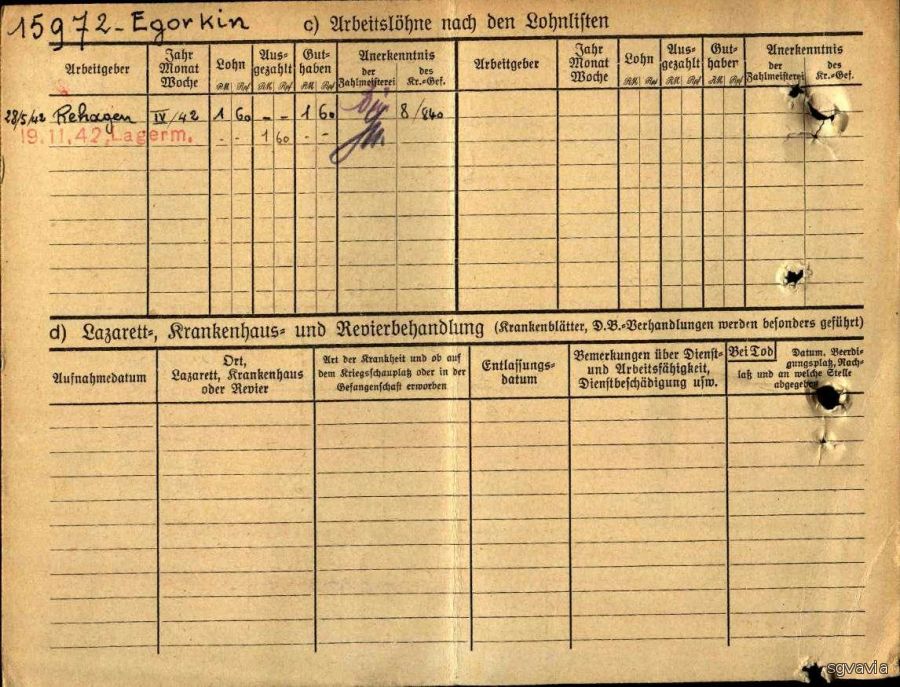 15972-Egorkin
c) Arbeitslöhne nach den Lohnlisten
Arbeitgeber Jahr Monat Woche Lohn RM Rpf Ausgezahlt RM Rpf Guthaben RM Rpf Anerkenntnis der Zahlmeisterei des Kr.-Gef. Arbeitgeber Jahr Monat Woche Lohn RM Rpf Ausgezahlt RM Rpf Guthaben RM Rpf Anerkenntnis der Zahlmeisterei des Kr.-Gef.
28/5/42 Rehagen IV/42 1 60 - - 1 60 8/840
19.11.42, Lagerm. - - 1 60 - -
d) Lazarett-, Krankenhaus- und Revierbehandlung (Krankenblätter, D.B.-Verhandlungen werden besonders geführt)
Aufnahmedatum
Ort,
Lazarett, Krankenhaus
oder Revier
Art der Krankheit und ob auf
dem Kriegsschauplatz oder in der
Gefangenschaft erworben
Entlassungs-
datum
Bemerkungen über Dienst-
und Arbeitsfähigkeit,
Dienstbeschädigung usw.
Bei Tod Datum, Beerdi-
gungsplatz, Nach-
laß und an welche Stelle
abgegeben
sgvavia